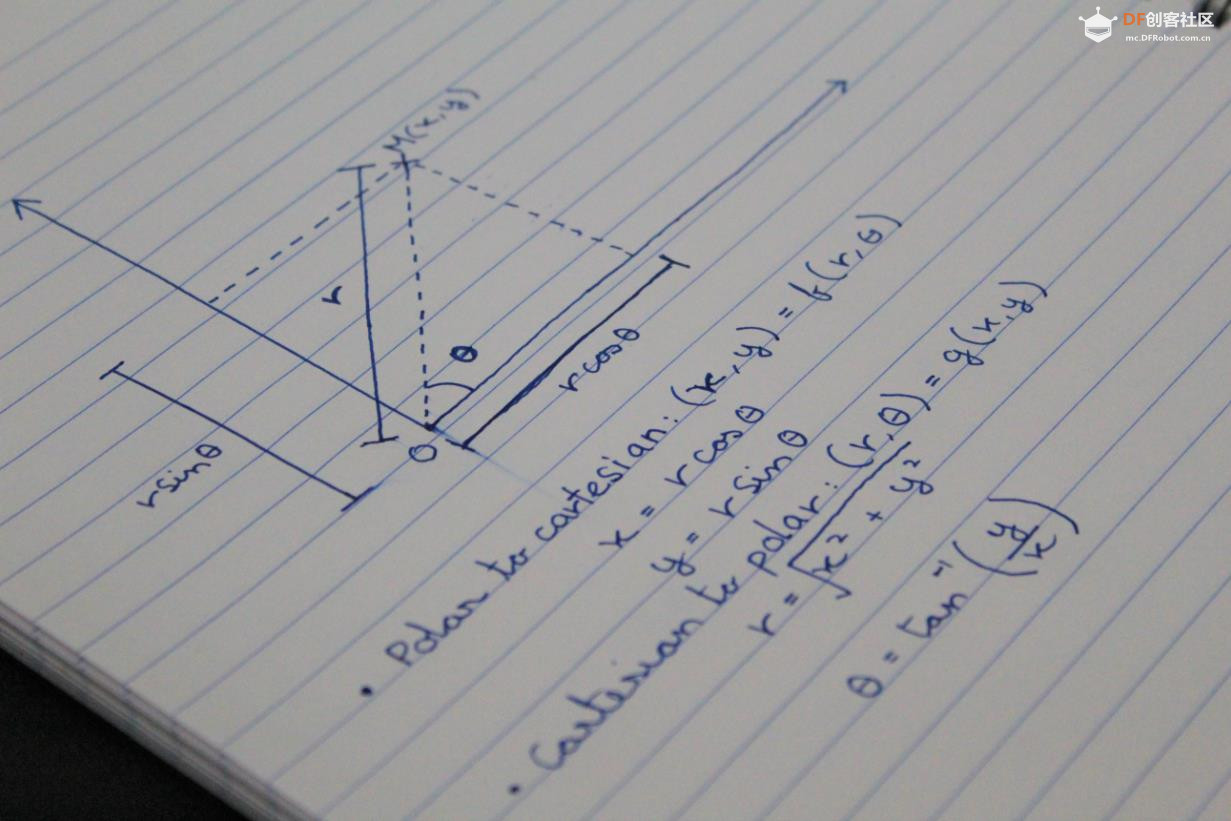 DF创客社区
mc.DFRobot.com.cn
M(x,y)
r
θ
r cosθ
r sinθ
O
• Polar to cartesian: (x, y) = f(r, θ)
x = r cosθ
y = r sinθ
• Cartesian to polar: (r, θ) = g(x, y)
r = √(x² + y²)
θ = tan⁻¹(y/x)